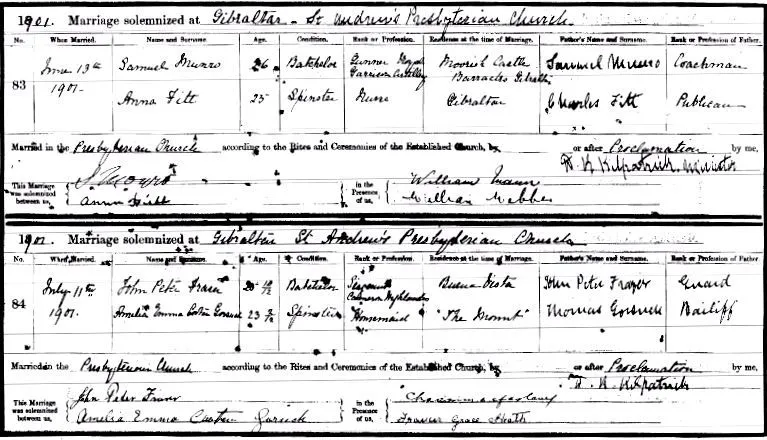 1901. Marriage solemnized at Gibraltar - St Andrew's Presbyterian Church
No. When Married. Name and Surname. Age. Condition. Rank or Profession. Residence at the time of Marriage. Father's Name and Surname. Rank or Profession of Father.
83 June 13th 1901. Samuel Munro 26 Batchelor Gunner Royal Garrison Artillery Moorish Castle Barracks Gibraltar Samuel Munro Coachman
Anna Fitt 25 Spinster Nurse Gibraltar Charles Fitt Publican
Married in the Presbyterian Church according to the Rites and Ceremonies of the Established Church, by or after Proclamation by me,
Kilpatrick Minister
This Marriage was solemnized between us, S Munro in the Presence of us, William Mann
Anna William Webber
1901. Marriage solemnized at Gibraltar St Andrew's Presbyterian Church
No. When Married. Name and Surname. Age. Condition. Rank or Profession. Residence at the time of Marriage. Father's Name and Surname. Rank or Profession of Father.
84 July 11th 1901. John Peter Fraser Batchelor Cameron Highlanders Buena Vista John Peter Frazer Guard
Amelia Emma 23 Spinster Housemaid "The Mount" Thomas Bailiff
Married in the Presbyterian Church according to the Rites and Ceremonies of the Established Church, by or after Proclamation by me,
Kilpatrick
This Marriage was solemnized between us, John Peter Fraser in the Presence of us,
Amelia Emma Frances Grace Heath